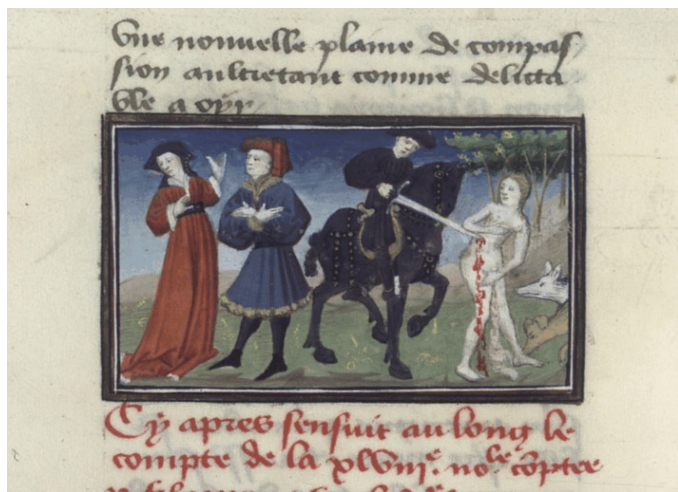 vne nouuelle plaine de compas
sion aultretant comme delicta
ble a oyr
Cy apres sensuit au long le
compte de la xlviii.e no.le comptee